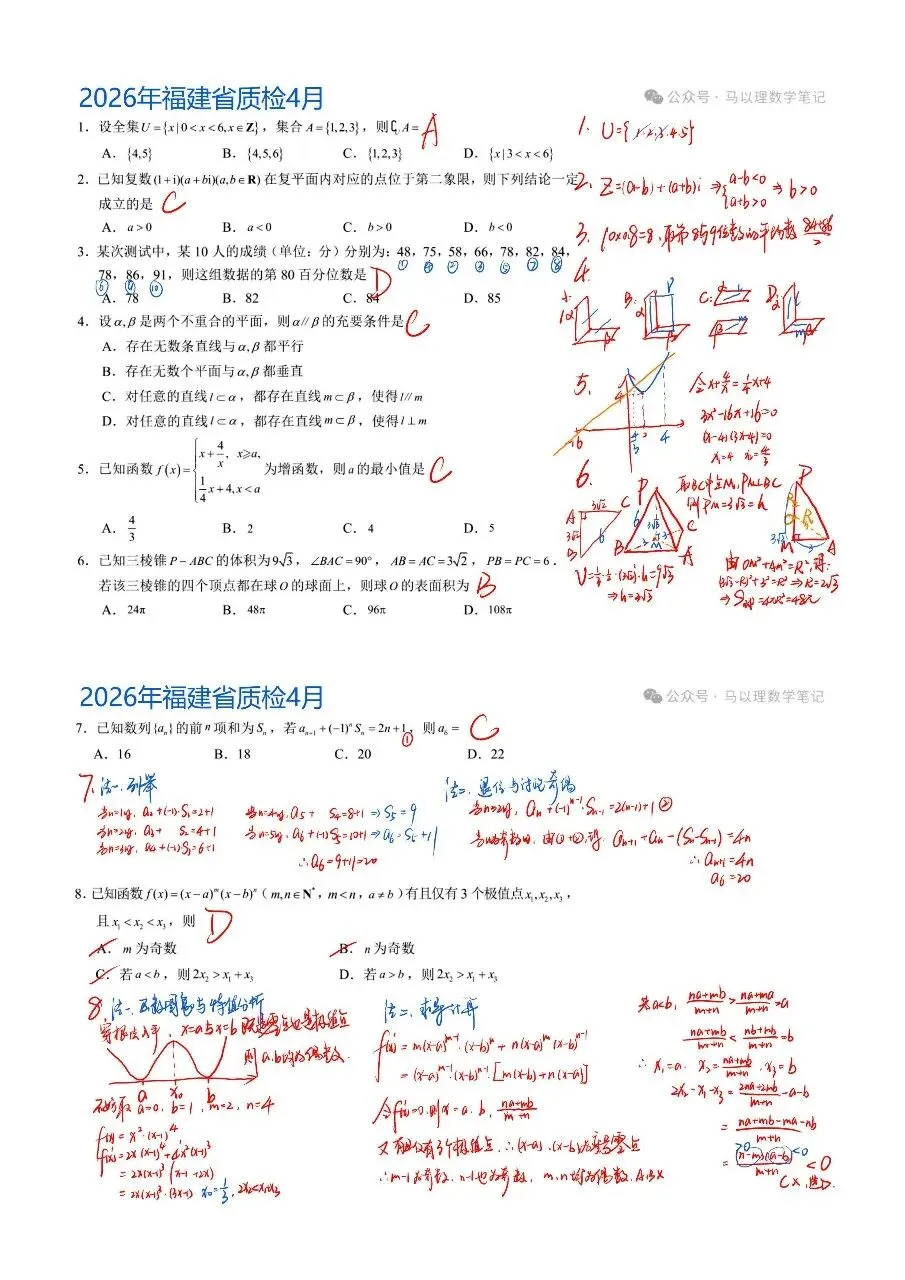 2026年福建省质检4月
公众号 · 马以理数学笔记
1. 设全集U={x|0<x<6,x∈Z}，集合A={1,2,3}，则∁_U A= A
A. {4,5} B. {4,5,6} C. {1,2,3} D. {x|3<x<6}
2. 已知复数(1+i)(a+bi)(a,b∈R)在复平面内对应的点位于第二象限，则下列结论一定
成立的是 C
A. a>0 B. a<0 C. b>0 D. b<0
3. 某次测试中，某10人的成绩（单位：分）分别为：48，75，58，66，78，82，84，
① ④ ② ③ ⑤ ⑦ ⑧
78，86，91，则这组数据的第80百分位数是 D
⑥ ⑨ ⑩
A. 78 B. 82 C. 84 D. 85
4. 设α,β是两个不重合的平面，则α//β的充要条件是 C
A. 存在无数条直线与α,β都平行
B. 存在无数个平面与α,β都垂直
C. 对任意的直线l⊂α，都存在直线m⊂β，使得l//m
D. 对任意的直线l⊂α，都存在直线m⊂β，使得l⊥m
5. 已知函数f(x)={x+4/x, x≥a, 1/4x+4, x<a 为增函数，则a的最小值是 C
A. 4/3 B. 2 C. 4 D. 5
6. 已知三棱锥P-ABC的体积为9√3，∠BAC=90°，AB=AC=3√2，PB=PC=6.
若该三棱锥的四个顶点都在球O的球面上，则球O的表面积为 B
A. 24π B. 48π C. 96π D. 108π
1. U={1,2,3,4,5}
2. Z=(a-b)+(a+b)i ⇒ {a-b<0 a+b>0 ⇒ b>0
3. 10×0.8=8，取第8与9位数的平均数 (84+86)/2
4.
A: B: C: D:
5. 令x+4/x=1/4x+4
3x²-16x+16=0
(x-4)(3x-4)=0
x₁=4 x₂=4/3
6. 取BC中点M，PM⊥BC
则PM=3√3=h
V=1/3·1/2·(3√2)²·h=9√3
⇒h=3√3
由OM²+AM²=R²，得：
(3√3-R)²+3²=R²⇒R=2√3
⇒S球=4πR²=48π
2026年福建省质检4月
公众号 · 马以理数学笔记
7. 已知数列{aₙ}的前n项和为Sₙ，若aₙ₊₁+(-1)ⁿSₙ=2n+1，则a₆= C
①
A. 16 B. 18 C. 20 D. 22
7. 法一、列举
当n=1时，a₂+(-1)·S₁=2+1
当n=2时，a₃+ S₂=4+1
当n=3时，a₄+(-1)S₃=6+1
当n=4时，a₅+ S₄=8+1⇒S₅=9
当n=5时，a₆+(-1)S₅=10+1⇒a₆=S₅+11
∴a₆=9+11=20
法二、退位与讨论奇偶
当n≥2时，aₙ+(-1)ⁿ⁻¹·Sₙ₋₁=2(n-1)+1 ②
当n为奇数时，由①+②，得：aₙ₊₁+aₙ-(Sₙ-Sₙ₋₁)=4n
∴aₙ₊₁=4n
a₆=20
8. 已知函数f(x)=(x-a)ᵐ(x-b)ⁿ（m,n∈N*，m<n，a≠b）有且仅有3个极值点x₁,x₂,x₃，
且x₁<x₂<x₃，则 D
A. m为奇数 B. n为奇数
C. 若a<b，则2x₂>x₁+x₃ D. 若a>b，则2x₂>x₁+x₃
8. 法一、函数图象与特值分析
穿根法入手，x=a与x=b既是零点也是极值点
a x₀ b
不妨取a=0，b=1，m=2，n=4
f(x)=x²·(x-1)⁴
f'(x)=2x(x-1)⁴+4x²(x-1)³
=2x(x-1)³(x-1+2x)
=2x(x-1)³·(3x-1) x₀=1/3，2x₂<x₁+x₃
法二、求导计算
f'(x)=m(x-a)ᵐ⁻¹·(x-b)ⁿ+n(x-a)ᵐ(x-b)ⁿ⁻¹
=(x-a)ᵐ⁻¹·(x-b)ⁿ⁻¹·[m(x-b)+n(x-a)]
令f'(x)=0，则x=a，b，(na+mb)/(m+n)
又有且仅有3个极值点，∴(x-a)、(x-b)为变号零点
∴m-1为奇数，n-1也为奇数，m、n均为偶数，A、B×
若a<b，(na+mb)/(m+n)>(na+ma)/(m+n)=a
(na+mb)/(m+n)<(nb+mb)/(m+n)=b
∴x₁=a，x₂=(na+mb)/(m+n)，x₃=b
2x₂-x₁-x₃=(2na+2mb)/(m+n)-a-b
=(na+mb-ma-nb)/(m+n)
=(n-m)(a-b)/(m+n)<0
>0 <0
C×，选D.